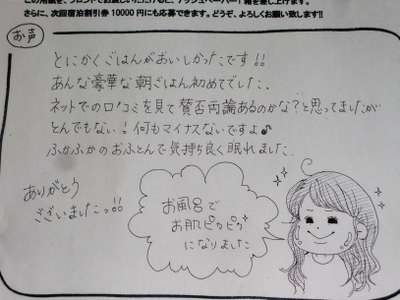 さらに、次回宿泊割引券10000円にも応募できます。どうぞ、よろしくお願い致します!!
お声
とにかくごはんがおいしかったです!!
あんな豪華な朝ごはん初めてでした。
ネットでの口コミを見て賛否両論あるのかな?と思ってましたが
とんでもない!何もマイナスないですよ♪
ふかふかのおふとんで気持ち良く眠れました
ありがとう
ございましたっ!!
お風呂で
お肌ピカピカ
になりました